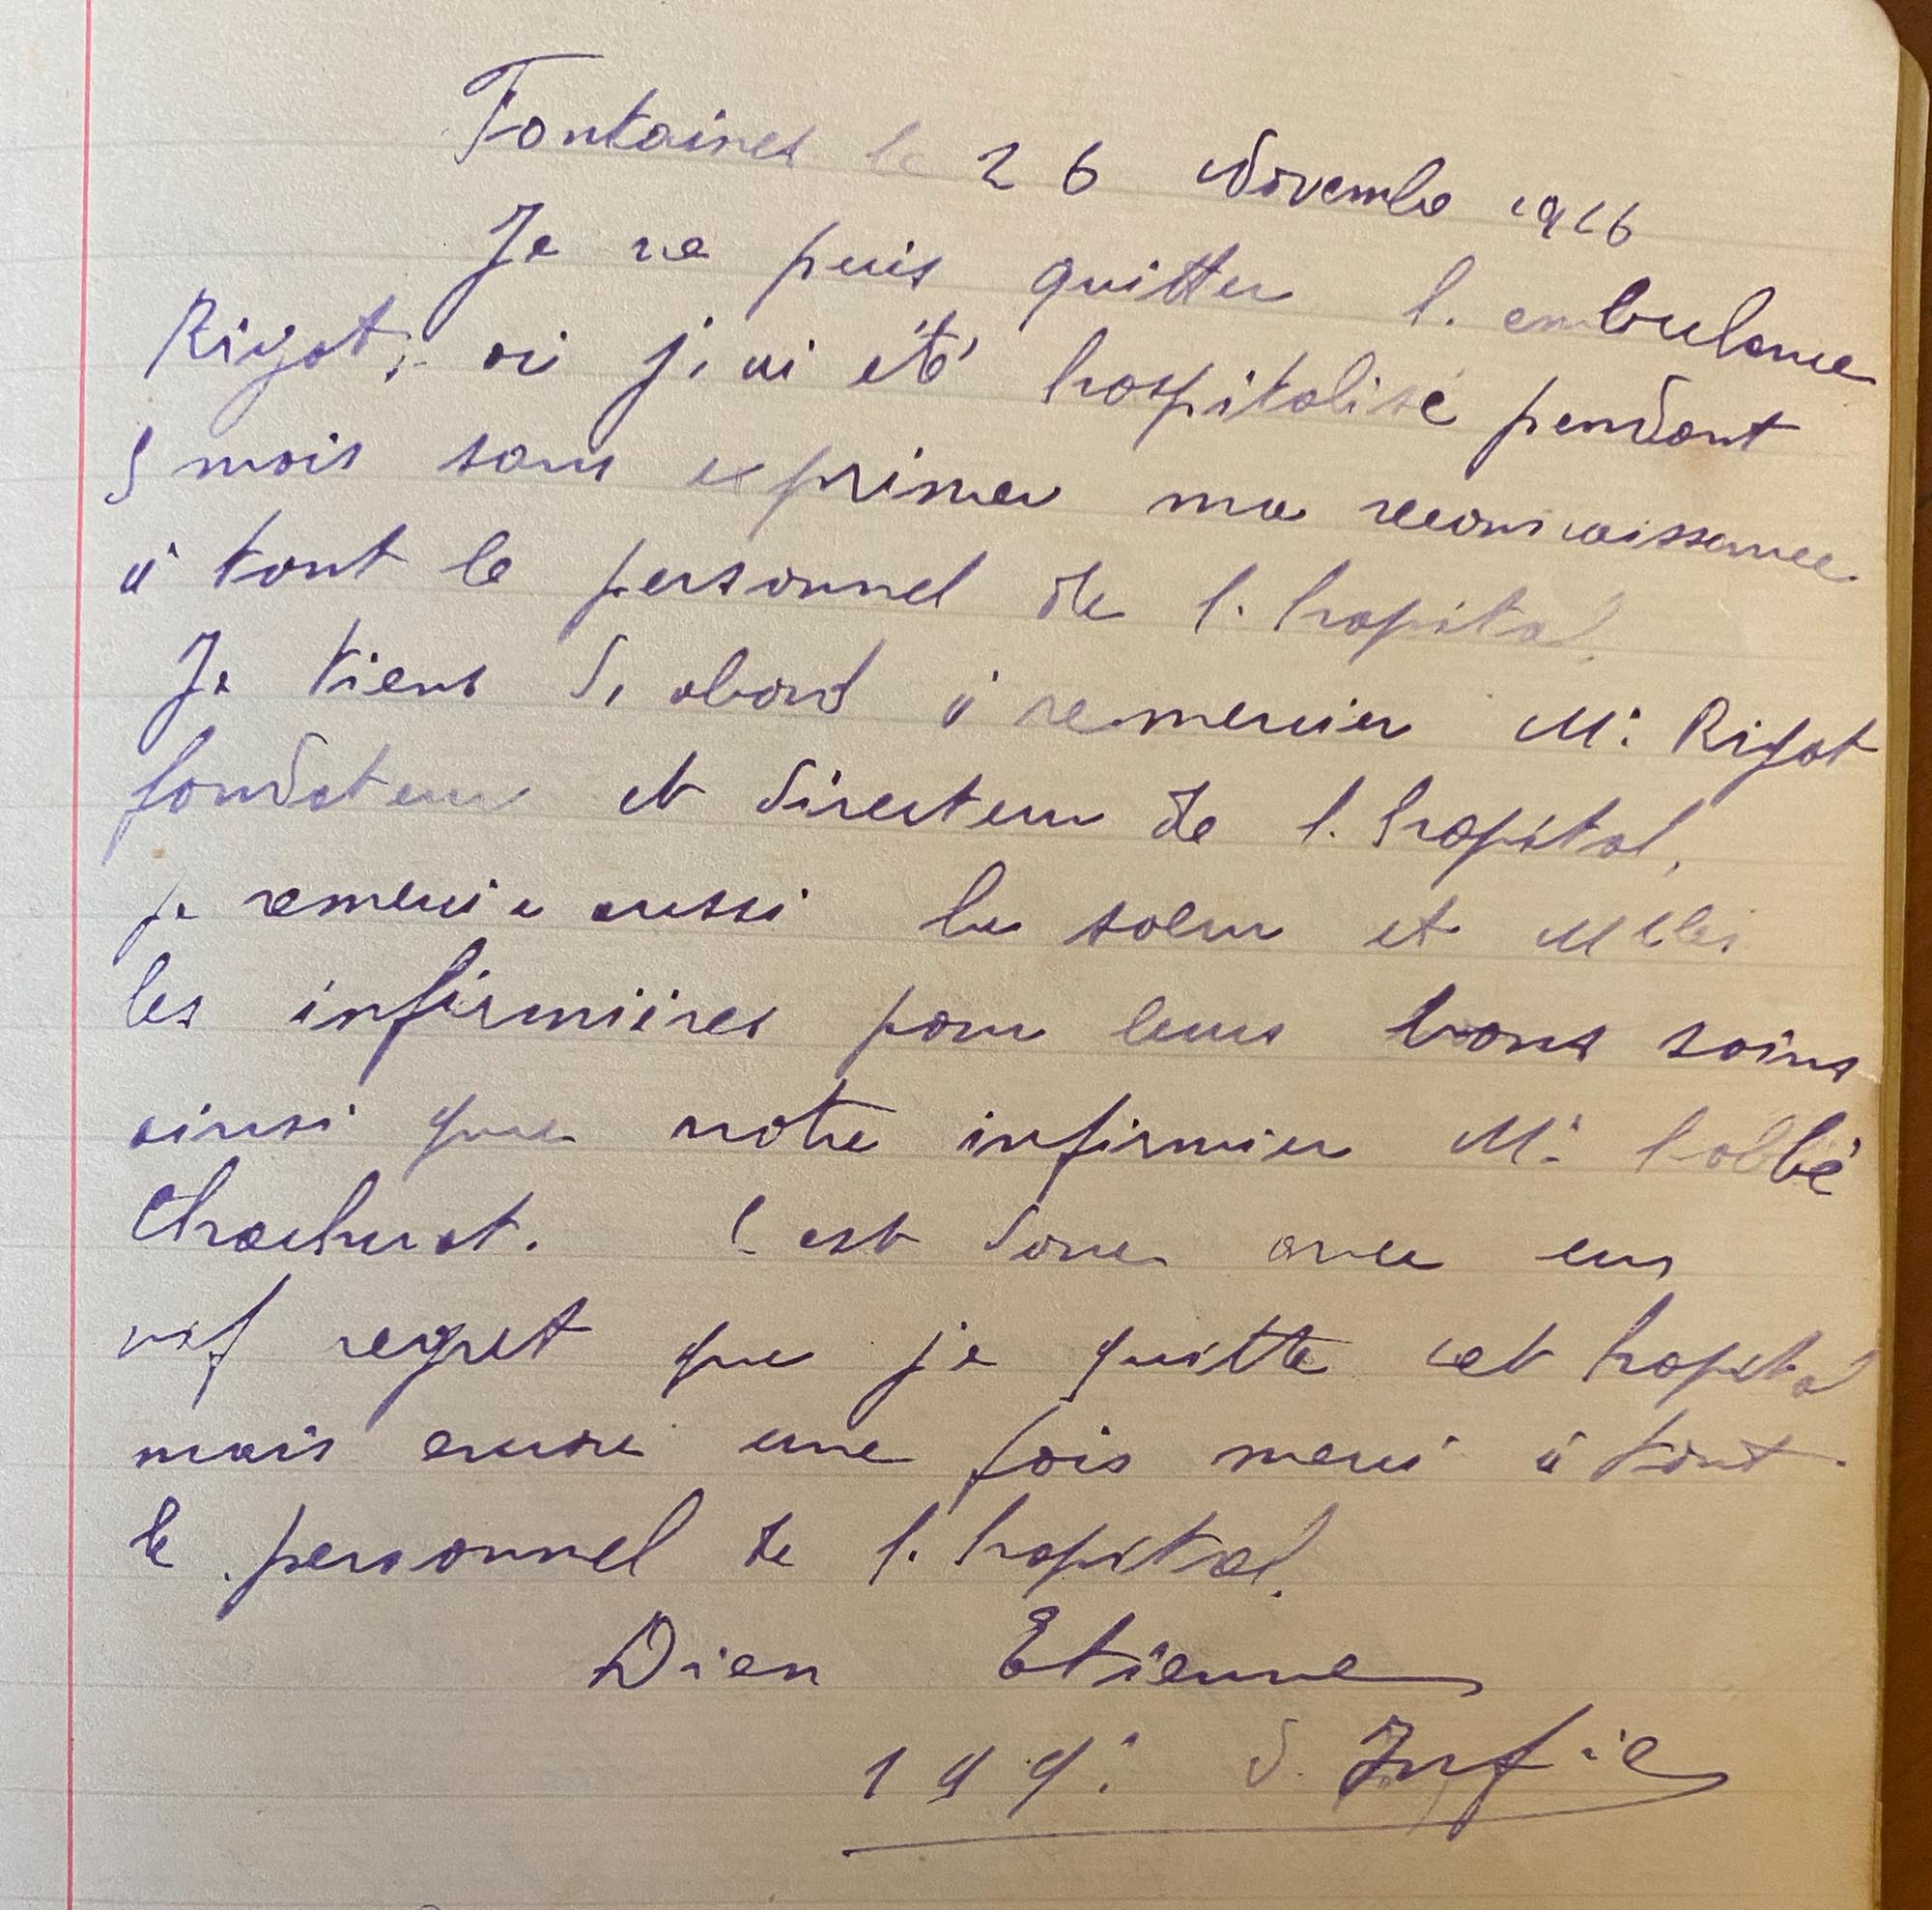 Fontaines le 26 Novembre 1916
Je ne puis quitter l'embulance
Rigot, où j'ai été hospitalisé pendant
5 mois sans exprimer ma reconnaissance
à tout le personnel de l'hopital.
Je tiens d'abord à remercier Mr Rigot
fondateur et directeur de l'hopital,
je remercie aussi la soeur et Mlles
les infirmières pour leurs bons soins
ainsi que notre infirmier Mr l'abbé
C'est donc avec un
vif regret que je quitte cet hopital
mais encore une fois merci à tout
le personnel de l'hopital.
Dien Etienne
199e d'Infie